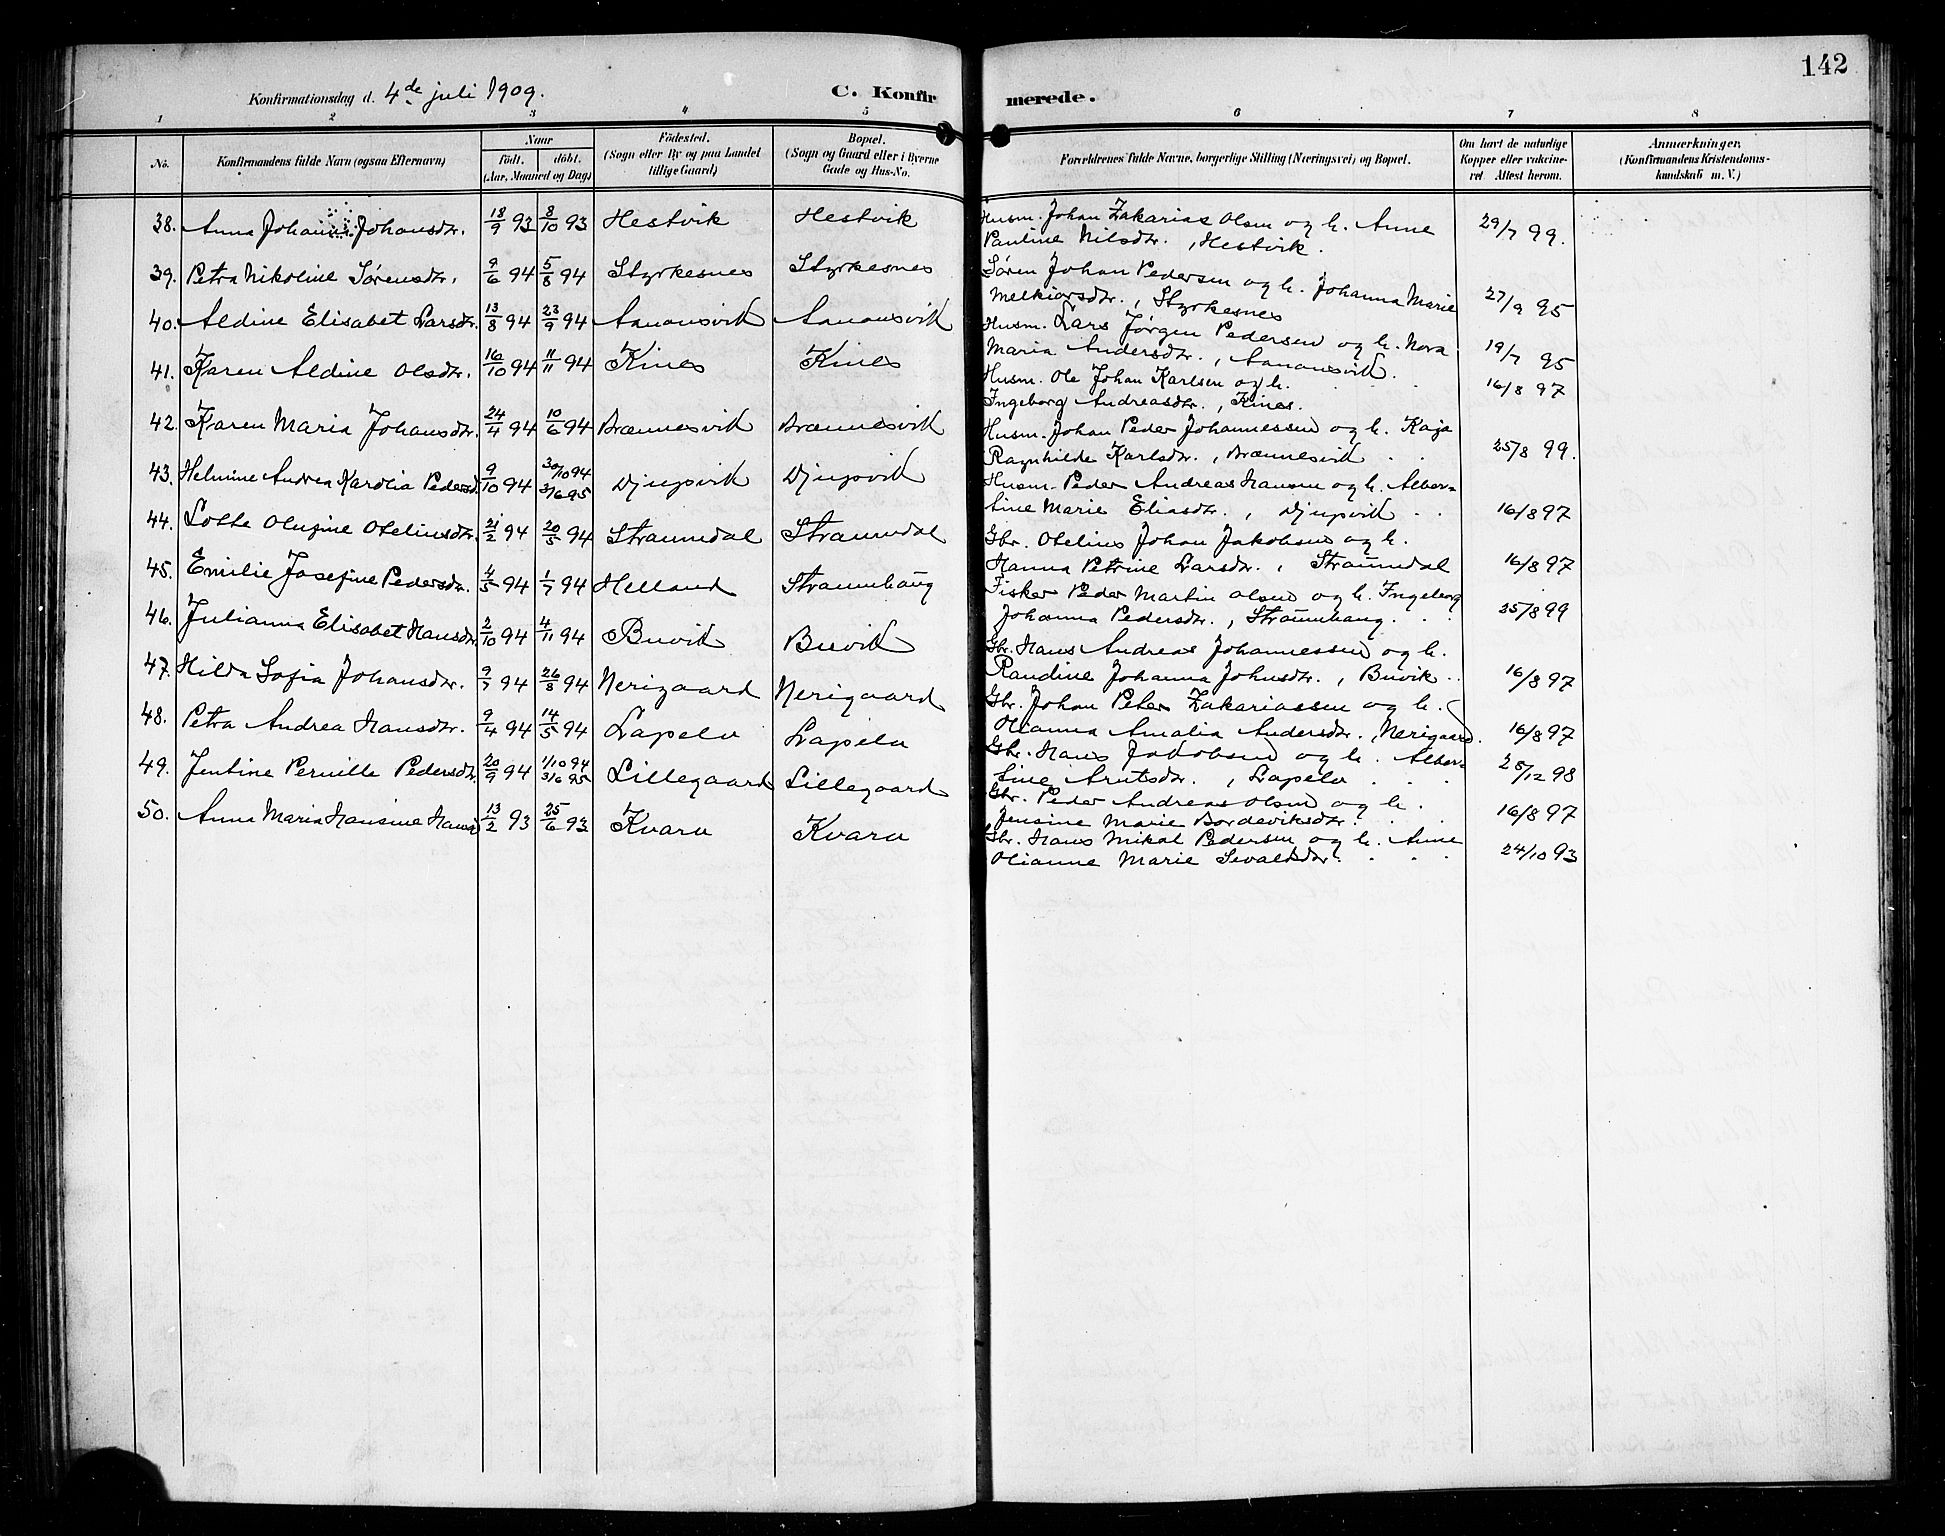 142
Konfirmationsdag d. 4de juli 1909.
C. Konfirmerede.
1 2 3 4 5 6 7 8
No.
Konfirmandens fulde Navn (ogsaa Efternavn)
Naar
født. døbt.
(Aar, Maaned og Dag)
Fødested.
(Sogn eller By og paa Landet
tillige Gaard)
Bopæl.
(Sogn og Gaard eller i Byerne
Gade og Hus-No.
Forældrenes fulde Navne, borgerlige Stilling (Næringsvei) og Bopæl.
Om havt de naturlige
Kopper eller vakcine-
ret. Attest herom.
Anmærkninger,
(Konfirmandens Kristendoms-
kundskab m. V.)
38. Anna Johanne Johansdtr. 18/9 93 8/10 93 Hestvik Hestvik
Husm. Johan Zakarias Olsen og h. Anne
Pauline Nilsdtr., Hestvik. 29/7 99.
39. Petra Nikoline Sørensdtr. 9/6 94 5/8 94 Styrkesnes Styrkesnes
Søren Johan Pedersen og h. Johanna Marie
Melkiorsdtr., Styrkesnes 27/9 95
40. Aldine Elisabet Larsdtr. 13/8 94 23/9 94 Aanonsvik Aanonsvik
Husm. Lars Jørgen Pedersen og h. Nora
Maria Andersdtr., Aanonsvik. 19/7 95
41. Karen Aldine Olsdtr. 16/10 94 11/11 94 Kines Kines
Husm. Ole Johan Karlsen og h.
Ingeborg Andreasdtr., Kines. 16/8 97
42. Karen Maria Johansdtr. 24/4 94 10/6 94 Brænnesvik Brænnesvik
Husm. Johan Peder Johannessen og h. Kaja
Ragnhilde Karlsdtr., Brænnesvik 25/8 99.
43. Helmine Andrea Karolia Pedersd. 9/10 94 30/10 94
3/6 95 Djupvik Djupvik
Husm. Peder Andreas Hansen og h. Alber-
tine Marie Eliasdtr., Djupvik 16/8 97
44. Lotte Olufine Otelinsdtr. 21/2 94 20/5 94 Straumdal Straumdal
Gbr. Otelius Johan Jakobsen og h.
Hanna Petrine Larsdtr., Straumdal 16/8 97
45. Emilie Josefine Pedersdtr. 4/5 94 1/7 94 Helland Straumhaug
Fisker Peder Martin Olsen og h. Ingeborg
Johanna Pedersdtr., Straumhaug. 25/8 99
46. Julianna Elisabet Hansdtr. 2/10 94 4/11 94 Buvik Buvik
Gbr. Hans Andreas Johannessen og h.
Randine Johanna Johnsdtr., Buvik 16/8 97
47. Hilda Sofia Johansdtr. 9/7 94 26/8 94 Nerigaard Nerigaard
Gbr. Johan Peter Zakariassen og h.
Olianna Amalia Andersdtr. Nerigaard. 16/8 97
48. Petra Andrea Hansdtr. 9/4 94 14/5 94 Lapelv Lapelv
Gbr. Hans Jakobsen og h. Alber-
tine Arntsdtr., Lapelv 28/12 98
49. Jentine Pernille Pedersdtr. 20/9 94 1/10 94
3/6 95 Lillegaard Lillegaard
Gbr. Peder Andreas Olsen og h.
Jensine Marie Bordeviksdtr. 16/8 97
50. Anna Maria Hansine Hansd 13/2 93 25/6 93 Kvarv Kvarv
Gbr. Hans Mikal Pedersen og h. Anne
Olianne Marie Sevaldsdtr. 24/10 93